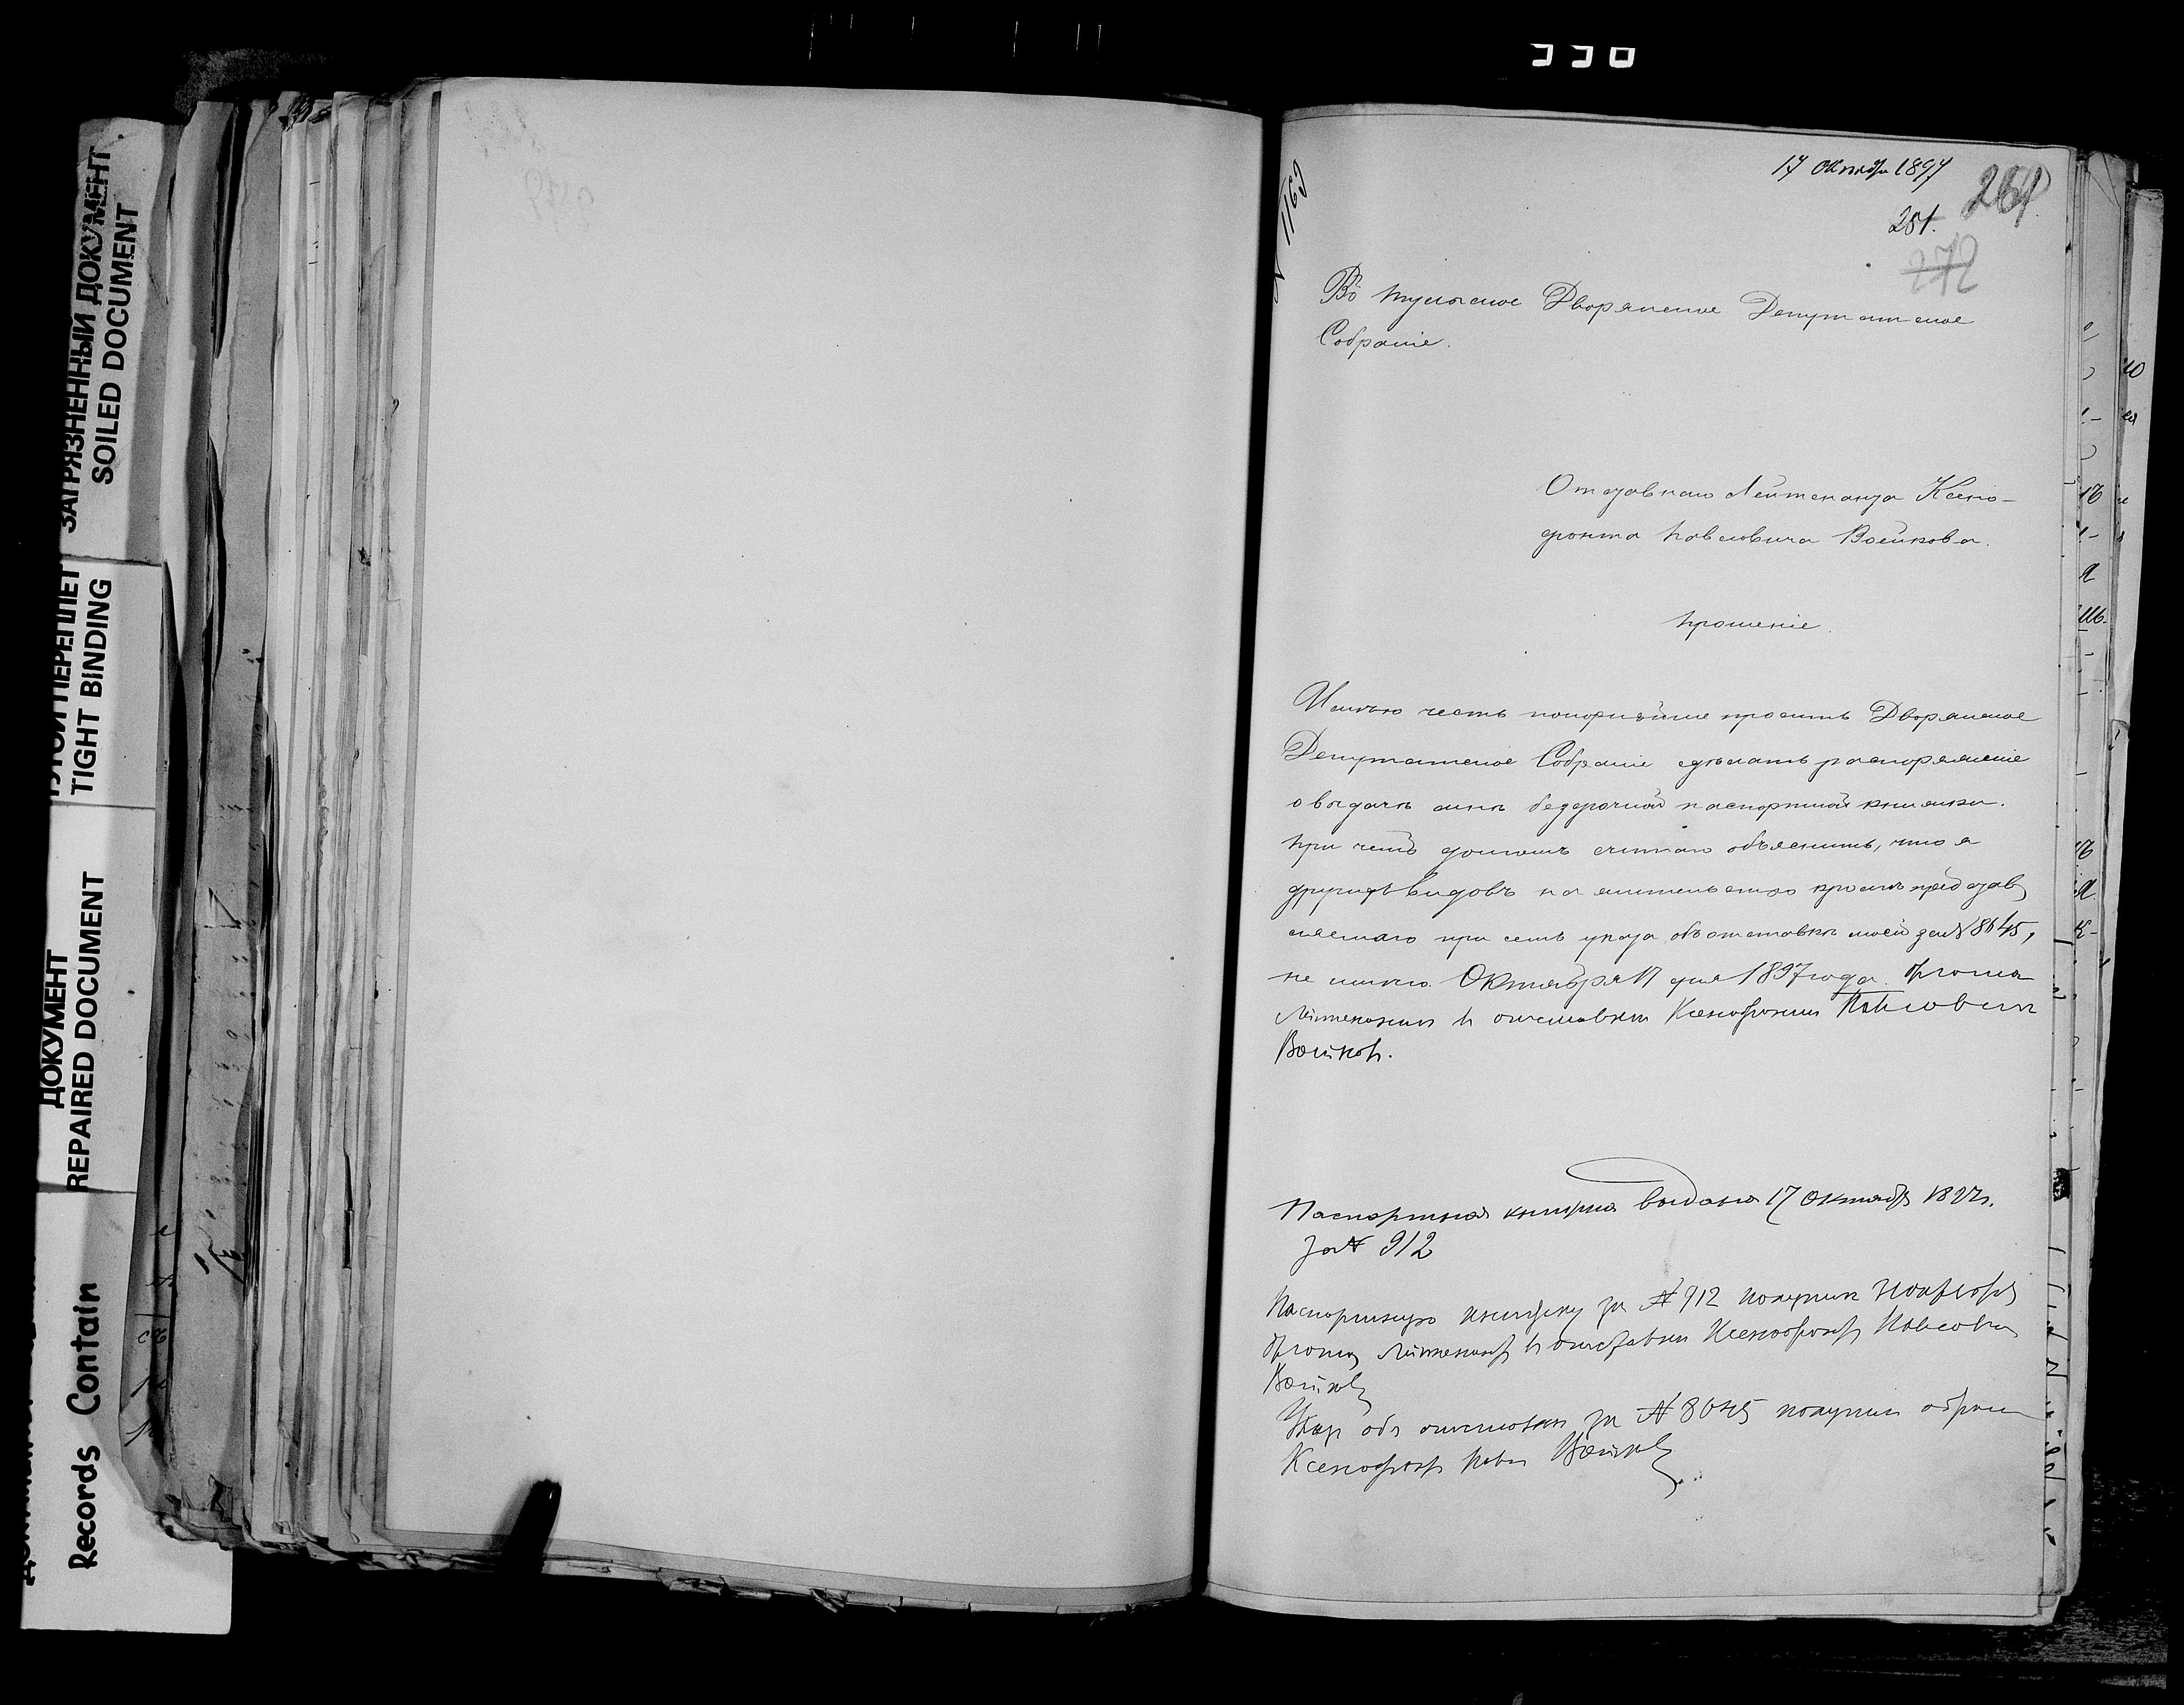 ЗАГРЯЗНЕННЫЙ ДОКУМЕНТ
SOILED DOCUMENT
ПЕРЕПЛЕТ
TIGHT BINDING
ДОКУМЕНТ
REPAIRED DOCUMENT
Records Contain
17 Октября 1897
N 1169
251.
272
Въ Тульское Дворянское Депутатское
Собраніе.
Отставного Лейтенанта Ксено-
фонта Павловича Воейкова.
Прошеніе.
Имѣю честь покорнѣйше просить Дворянское
Депутатское Собраніе сдѣлать распоряженіе
о выдачѣ мнѣ безсрочной паспортной книжки.
При чемъ должнымъ считаю объяснить, что я
другихъ видовъ на жительство кромѣ представ
ляемаго при семъ указа объ отставкѣ моей за № 8645,
не имѣю. Октября 17 дня 1897 года.
Лейтенантъ въ отставкѣ Ксенофонтъ Павловичъ
Воейковъ.
Паспортная книжка выдана 17 Октября 1897 г.
за № 912
Паспортную книжку за № 912 получилъ
Лейтенантъ въ отставкѣ Ксенофонтъ Павловичъ
Воейковъ
Указъ объ отставкѣ за № 8645 получилъ обратно
Ксенофонтъ Павл Воейковъ